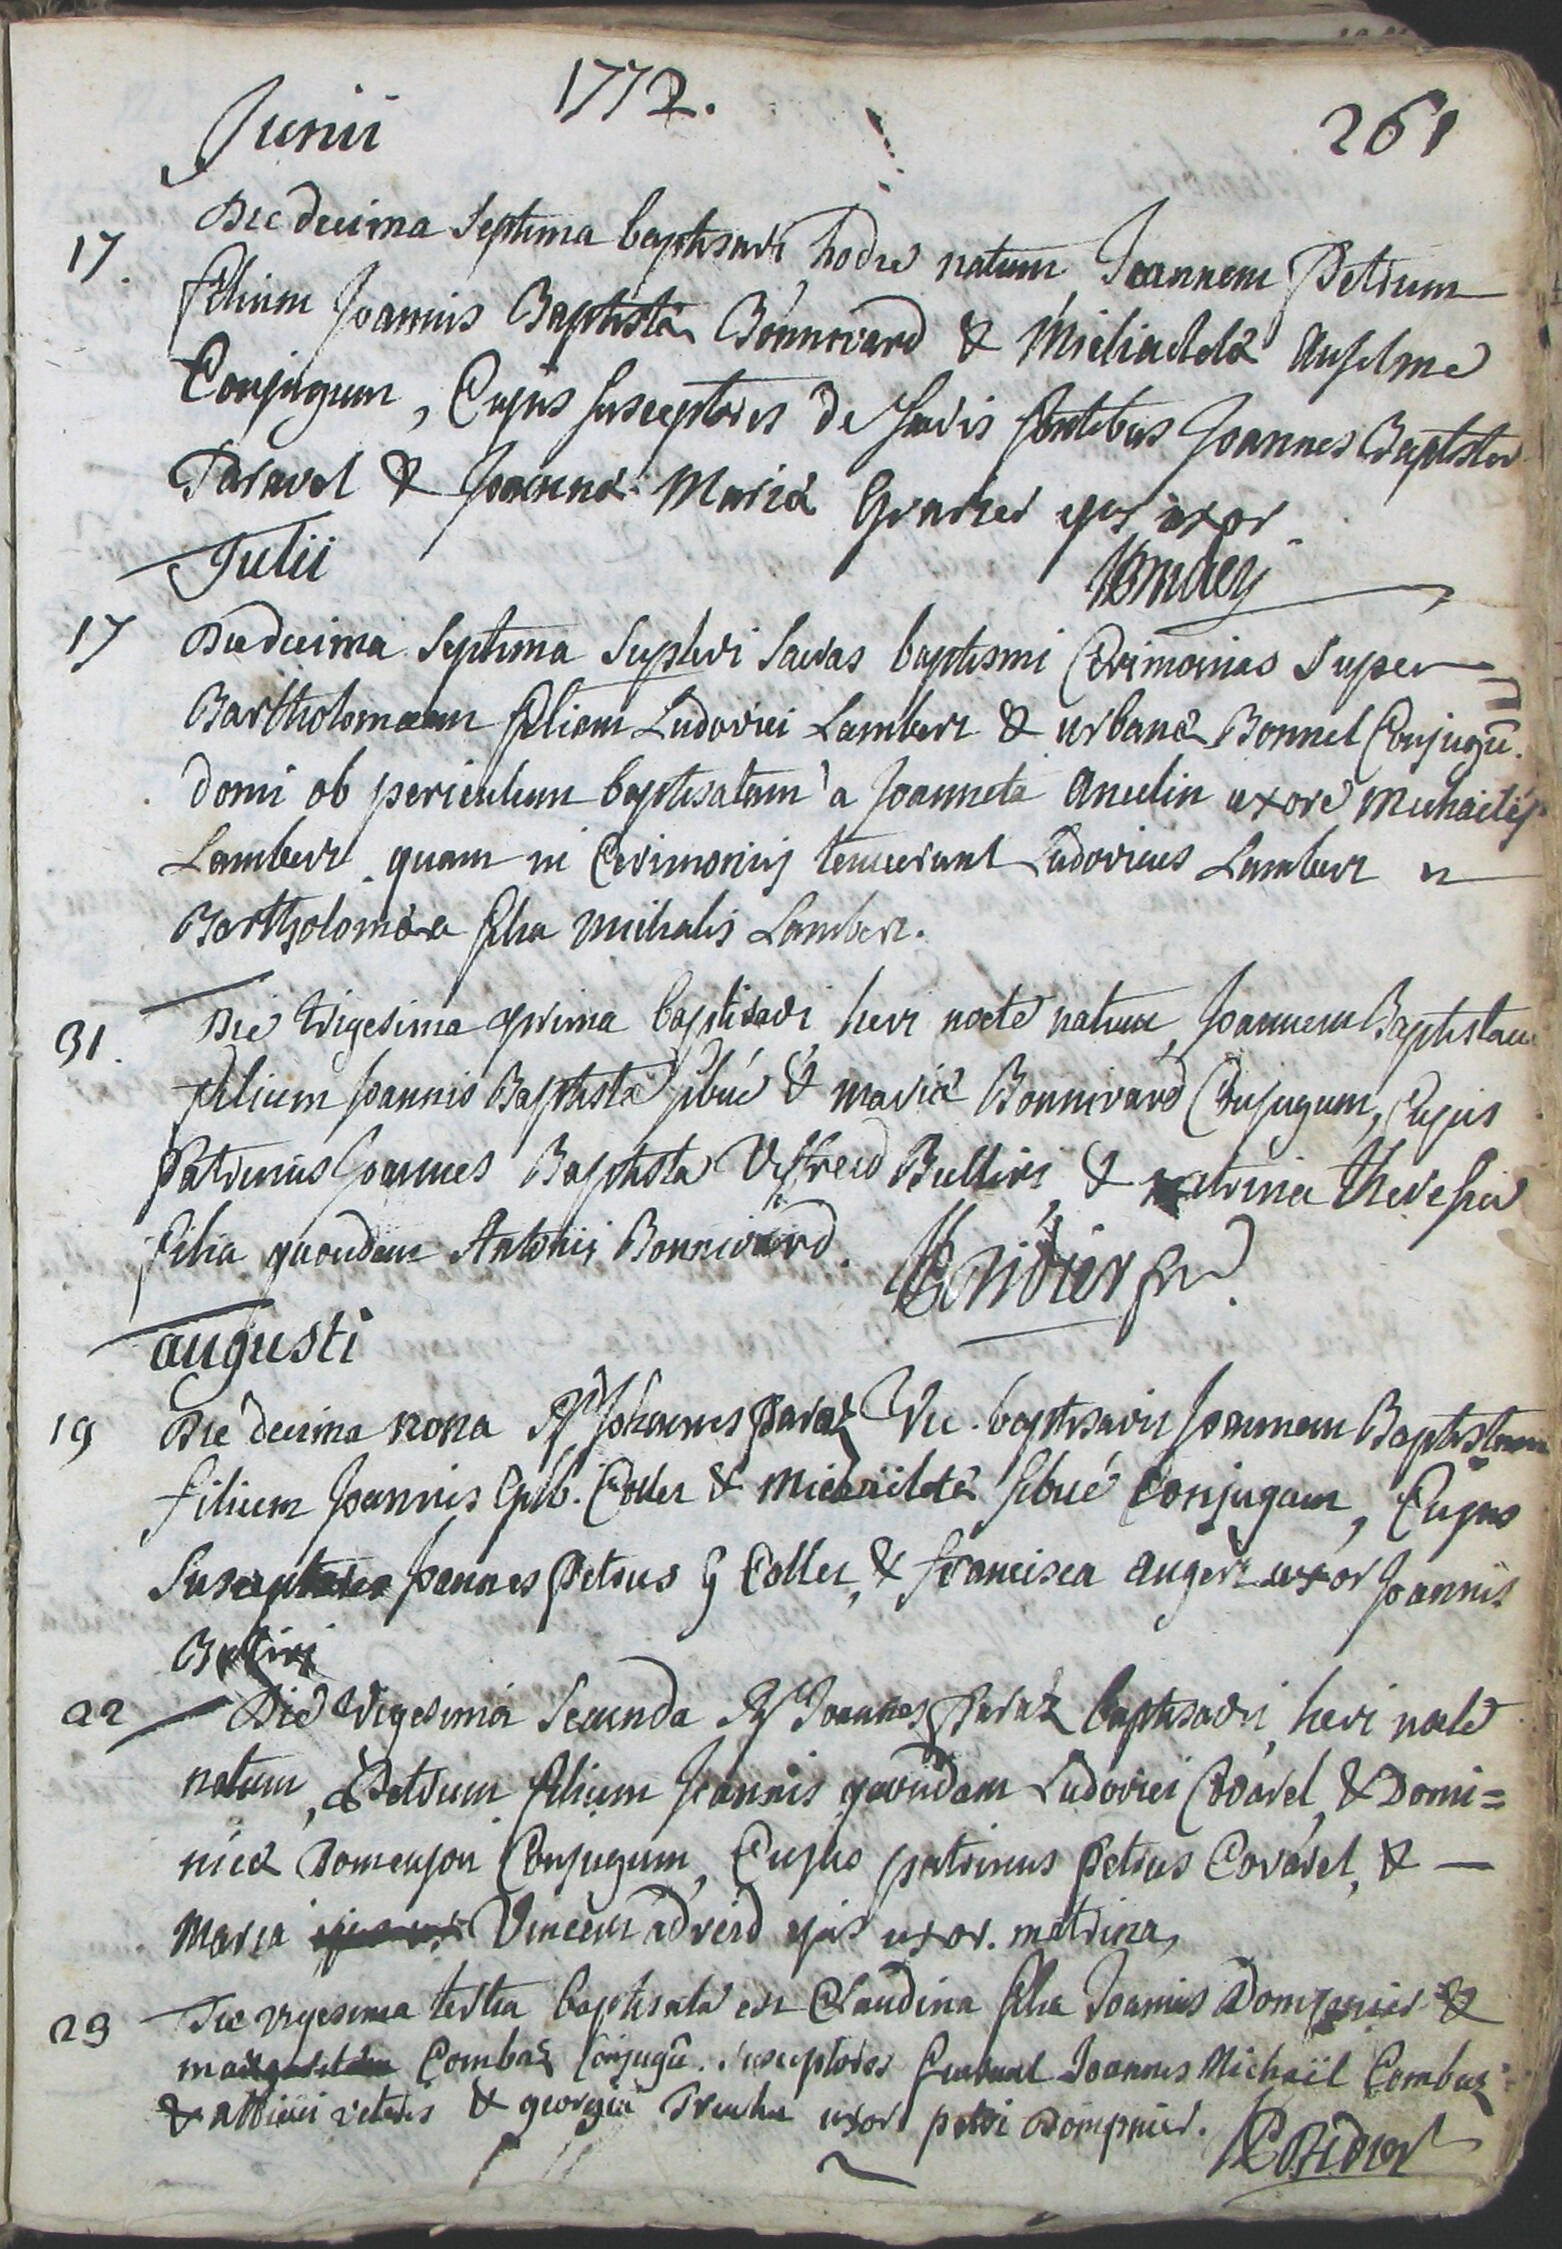 1772.
261
Junii
17. Die decima septima baptisavi, hodie natum, Joannem Petrum
filium Joannis Baptistæ Bonnivard & Michaeletæ Anselme
Conjugum, Cujus susceptores de sacris fontibus Joannes Baptista
Paravel & Joanna Maria Gravier ejus uxor
Julii
17 Die decima septima suplevi sacras baptismi Cerimonias super
Bartholomæam filiam Ludovici Lambert & urbanæ Bonnel Conjugũ.
domi ob periculum baptisatam a Joanneta Ancelin uxore Michaelis
Lambert quam in Cerimoniis tenuerunt Ludovicus Lambert et
Bartholomæa filia Michalis Lambert.
31. Die trigesima prima baptisavi, heri nocte natum, Joannem Baptistam
filium Joannis Baptistæ sibué & mariæ Bonnivard Conjugum, Cujus
Patrinus Joannes Baptista Viffreid Bulliri, & matrina theresia
filia quondam Antonii Bonnivard.
augusti
19 Die decima nona Rd Johannes Paraz Vic. baptisavit Joannem Baptistam
filium Joannis Bpte. Collet & Michaeletæ sibué Conjugum, Cujus
Susceptores Joannes Petrus Collet, & francisca augert uxor Joannis
22 Die Vigesima Secunda Rd Joannes Paraz baptisavit, heri nocte
natum, Petrum filium Joannis quondam Ludovici Covarel, & Domi=
nicæ Domenjon Conjugum, Cujus patrinus Petrus Covarel, &
Maria Vincent adreid ejus uxor. matrina,
23 Die vigesima tertia baptisata est Claudina filia Joannis Dompnier &
Combaz Conjugũ. susceptores fuerunt Joannes Michaël Combaz
& georgia Truchet uxor petri Dompnier.